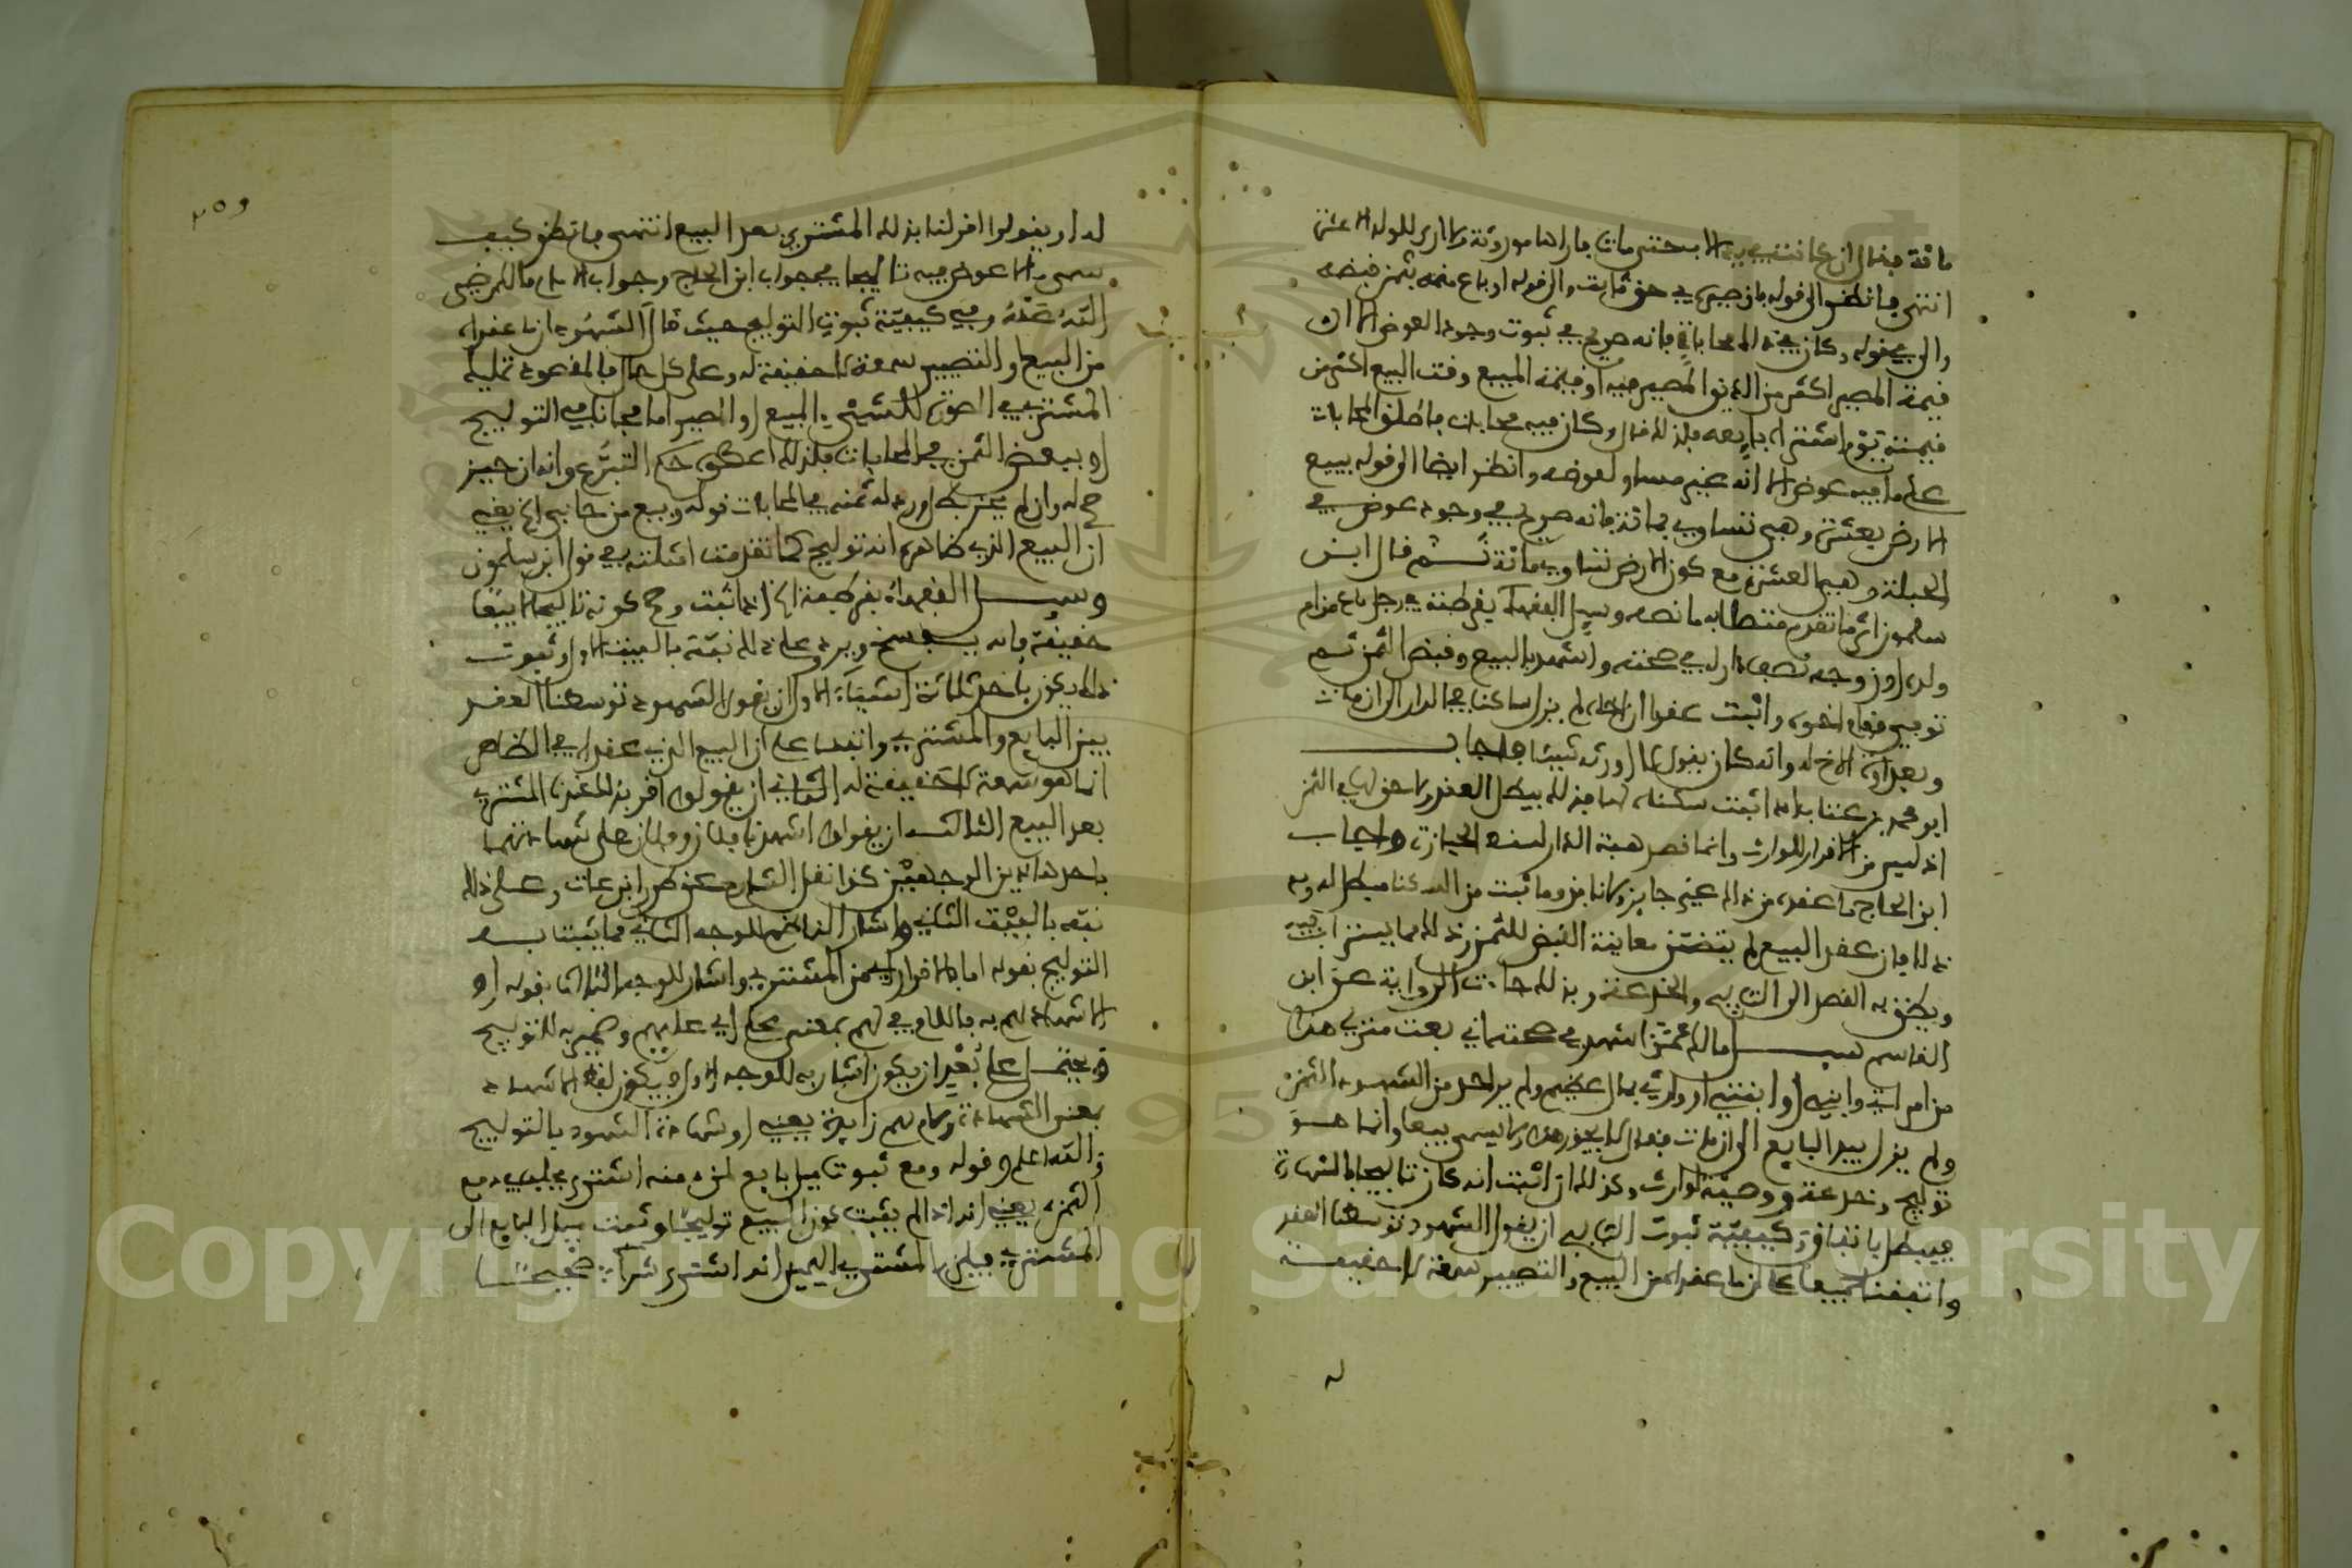 مائة فقال ان كانت بيده الا بحتى مات فاراها موروثة ولا ارى للولد الا عشرة
انتهى فانظر الى قوله فان صيره في حق ثابت والى قوله او باع منه بثمن قبضه
والى قوله وكان فيه محاباة فانه صريح في ثبوت وجود العوض الا ان
قيمة المصير اكثر من الدين المصير فيه او قيمة المبيع وقت البيع اكثر من
قيمته يوم اشتراه بايعه فلذلك قال وكان فيه محابات فاطلق المحابات
على ما فيه عوض الا انه غير مساو لعوضه وانظر ايضا الى قوله يبيع
الارض بعشرة وهي تساوي مائة فانه صريح في وجود عوض في
الجملة وهي العشرة مع كون الارض تساوي مائة ثم قال ابن
سلمون اثر ما تقدم متصلا به ما نصه وسيل الفقهاء بقرطبة في رجل باع من ام
ولده او زوجه نصف دار له في صحته واشهد بالبيع وقبض الثمن ثم
توفي فقام اخوه واثبت عقدا ان اخاه لم يزل ساكنا في الدار الى ان مات
وبعداوة الاخ له وانه كان يقول لا اورثه شيئا فاجاب
ابو محمد بن عتاب اذا اثبت سكناه لها فذلك يبطل العقد ولا حق لها في الثمن
اذ ليس من الاقرار للوارث وانما قصر هبة الدار لسنه الحيازة واجاب
ابن الحاج ما عقده من ذلك غير جايز ولا نافذ وما ثبت من السكنا مبطل له وبه
ذلك فان عقد البيع لم يتضمن معاينة القبض للثمن وذلك مما يستراب فيه
ويظن به القصد الى التوليج والخدعة وبذلك جاءت الرواية عن ابن
القاسم سيل مالك عمن اشهد في صحته اني بعت منزلي هذا
من امراتي وابني او ابنتي او وارثي بمال عظيم ولم ير احد من الشهود الثمن
ولم يزل بيد البايع الى ان مات فقال لا يجوز هذا ولا يسمى بيعا وانما هو
توليج وخدعة ووصية لوارث وكذلك ان اثبت انه كان تاليجا بالشهادة
فيبطل باتفاق وكيفية ثبوت التوليج ان يقول الشهود توسطنا العقد
واتفقنا جميعا على ان ما عقداه من البيع والتصيير سمعة لا حقيقة
له
٢٥٩
له او يقولوا اقر لنا بذلك المشتري بعد البيع انتهى فانظر كيف
سمى ما لا عوض فيه تاليجا في جواب ابن الحاج وجواب الامام مالك رضي
الله عنه وفي كيفية ثبوت التوليج حيث قال الشهود ان ما عقداه
من البيع او التصيير سمعة لا حقيقة له وعلى كل حال فالمقصود تمليك
المشتري الصوري للشيء المبيع او المصير اما مجانا في التوليج
او ببعض الثمن في المحابات فلذلك اعطي حكم التبرع وانه ان حيز
صح له وان لم يحز بطل ورد له ثمنه في المحابات قوله وبيع من حابى الخ يعني
ان البيع الذي ظاهره انه توليج كما تقدمت امثلته في قول ابن سلمون
وسيل الفقهاء بقرطبة الخ اذا ثبت وصح كونه تاليجا لا بيعا
حقيقة فانه يفسخ ويرد وعلى ذلك نبه بالبيت الاول وثبوت
ذلك يكون باحد ثلاثة اشياء الاول ان يقول الشهود توسطنا العقد
بين البايع والمشتري واتفقا على ان البيع الذي عقداه في الظاهر
انما هو سمعة لا حقيقة له الثاني ان يقولوا اقر بذلك عندنا المشتري
بعد البيع الثالث ان يقولوا اشهدنا فلان وفلان على شهادتهما
باحد هاذين الوجهين كذا نقل الشارح عن طرر ابن عات وعلى ذلك
نبه بالبيت الثاني واشار الناظم للوجه الثاني مما يثبت به
التوليج بقوله اما بالاقرار اي من المشتري واشار للوجه الثالث بقوله او
الاشهاد لهم به فاللام في لهم بمعنى على اي عليهم وضمير به للتوليج
ويحتمل على بعد ان يكون اشار به للوجه الاول ويكون لفظ الاشهاد
بمعنى الشهادة ولام لهم زايدة يعني او شهادة الشهود بالتوليج
والله اعلم وقوله ومع ثبوت ميل بايع لمن منه اشترى يحلف في دفع
الثمن يعني انه اذا لم يثبت كون البيع توليجا وثبت ميل البايع الى
المشتري فيلزم المشتري اليمين انه اشترى شراء صحيحا
Copyright © King Saud University